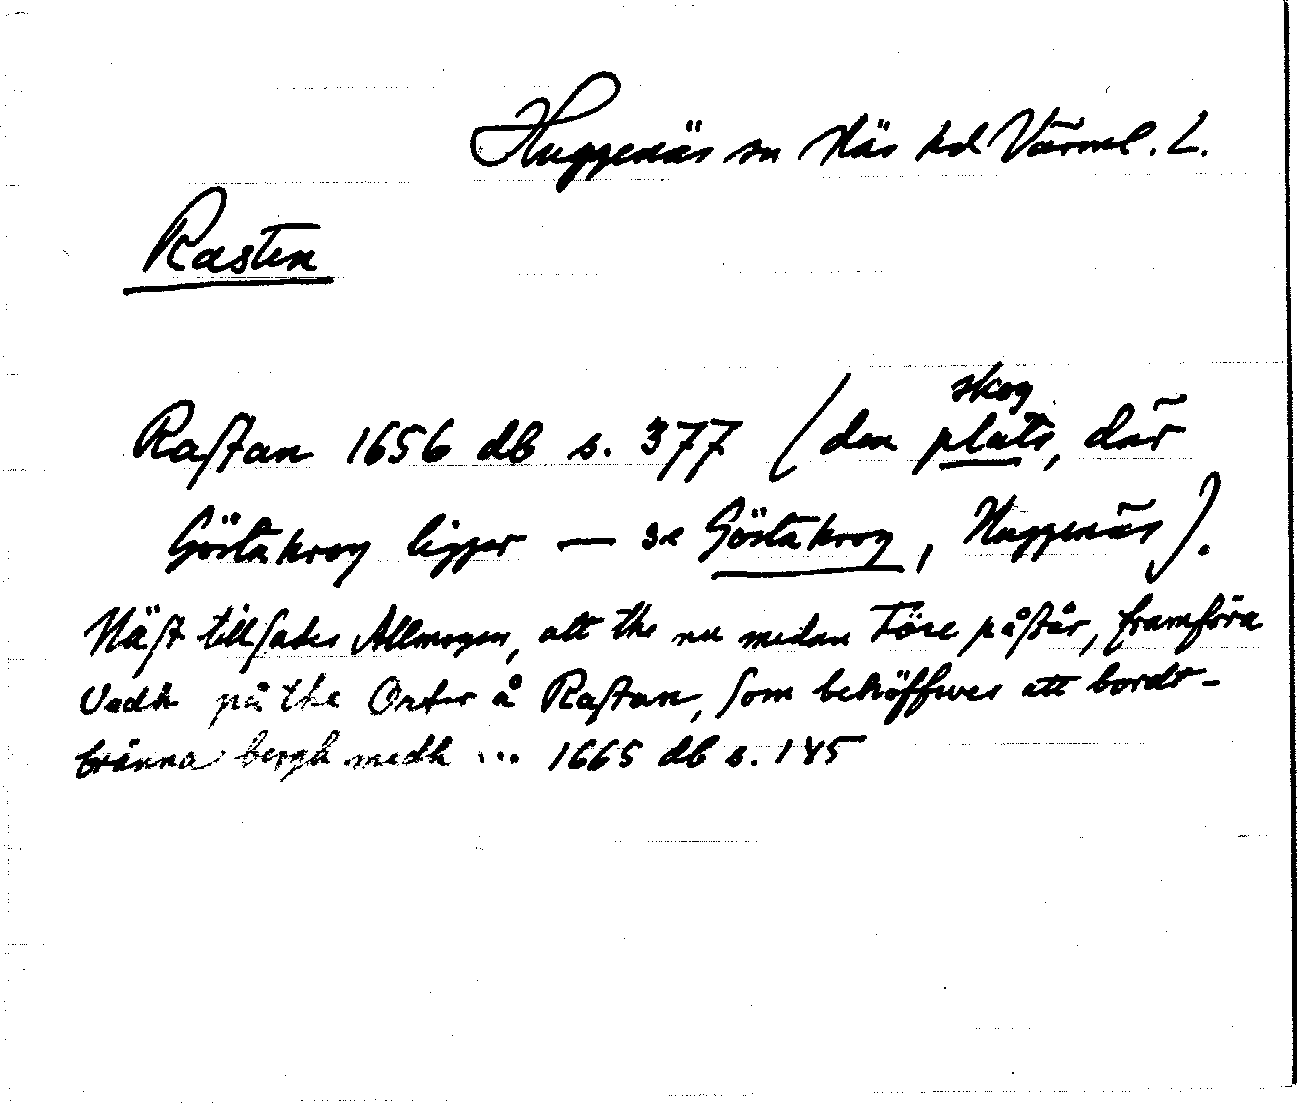 Huggenäs sn Näs hd Värml. L.
Rasten
Raſtan 1656 db s. 377 (den skog plats, där
Göstakrog ligger — se Göstakrog, Huggenäs).
Näſt tillſades Allmogen, att the nu medan Före påſtår, framföra
Vedh på the Orter å Raſtan, ſom behöffwes att bordt-
bränna bergh medh ... 1665 db s. 145